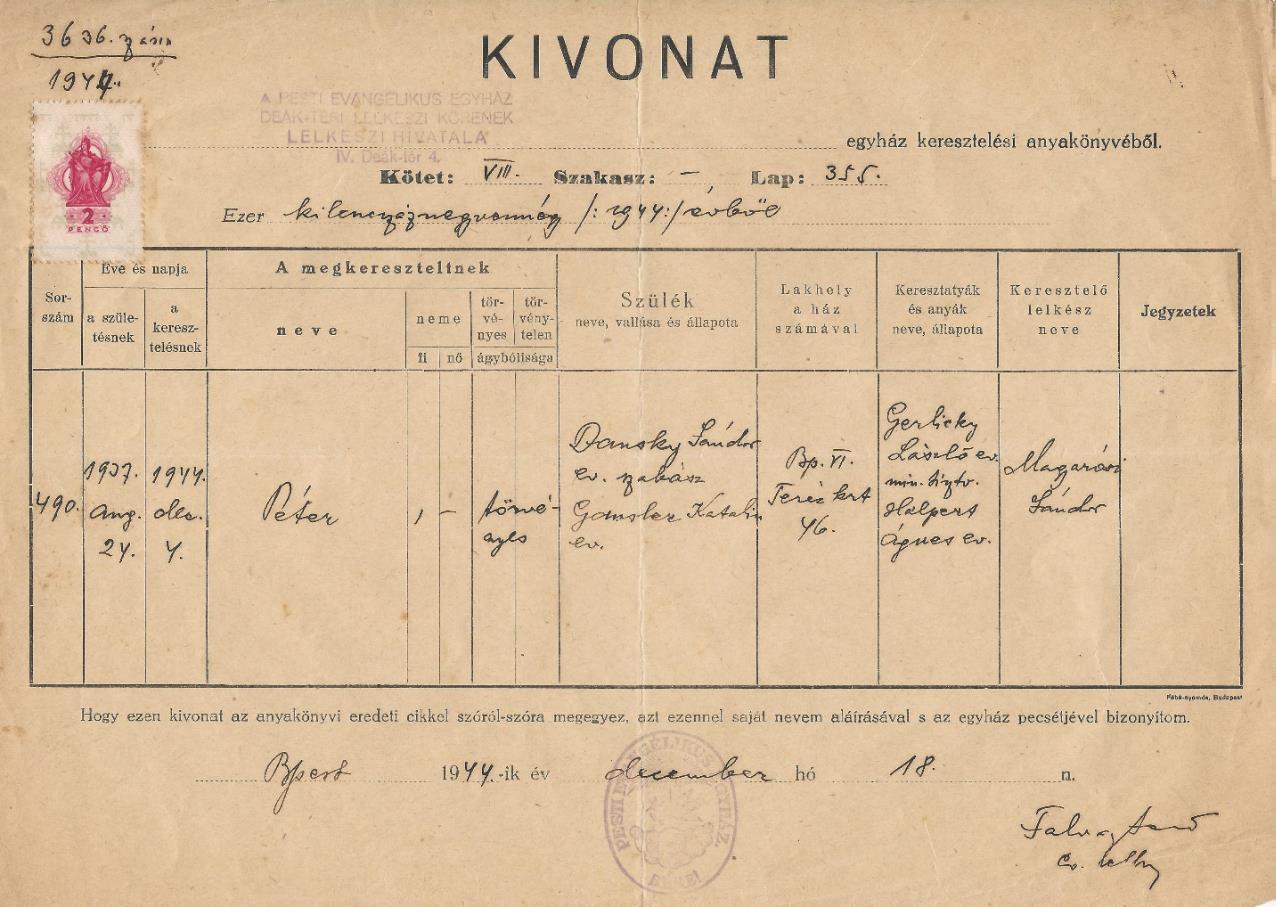 3636. szám
1944.
KIVONAT
A PESTI EVANGÉLIKUS EGYHÁZ
DEÁK-TÉRI LELKÉSZI KÖRÉNEK
LELKÉSZI HIVATALA
IV. Deák-tér 4.
egyház keresztelési anyakönyvéből.
2
PENGŐ
Kötet: VIII. Szakasz: — Lap: 355.
Ezer kilencszáznegyvennégy /: 1944 :/ évből
Sor-
szám
Éve és napja
a szüle-
tésnek
a
keresz-
telésnek
A megkereszteltnek
neve
neme
fi nő
tör-
vé-
nyes
tör-
vény-
telen
ágybólisága
Szülék
neve, vallása és állapota
Lakhely
a ház
számával
Keresztatyák
és anyák
neve, állapota
Keresztelő
lelkész
neve
Jegyzetek
490.
1937.
aug.
24.
1944.
dec.
4.
Péter
, -
törvé-
nyes
Dansky Sándor
ev. szabász
Gansler Katalin
ev.
Bp. VI.
Teréz krt
46.
Gerlicky
László ev.
min. tisztv.
Halpert
Ágnes ev.
Sándor
Fébé-nyomda, Budapest
Hogy ezen kivonat az anyakönyvi eredeti cikkel szóról-szóra megegyez, azt ezennel saját nevem aláírásával s az egyház pecsétjével bizonyítom.
Bpest 1944.-ik év december hó 18. n.
PESTI EVANGÉLIKUS EGYHÁZ
ev.